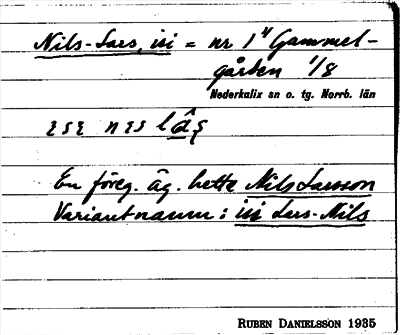 Nils-Lars, isi = nr 1" Gammel-
gården 1/8
Nederkalix sn o. tg. Norrb. län
En föreg. äg. hette Nils Larsson
Variantnamn: isi Lars-Nils
RUBEN DANIELSSON 1935